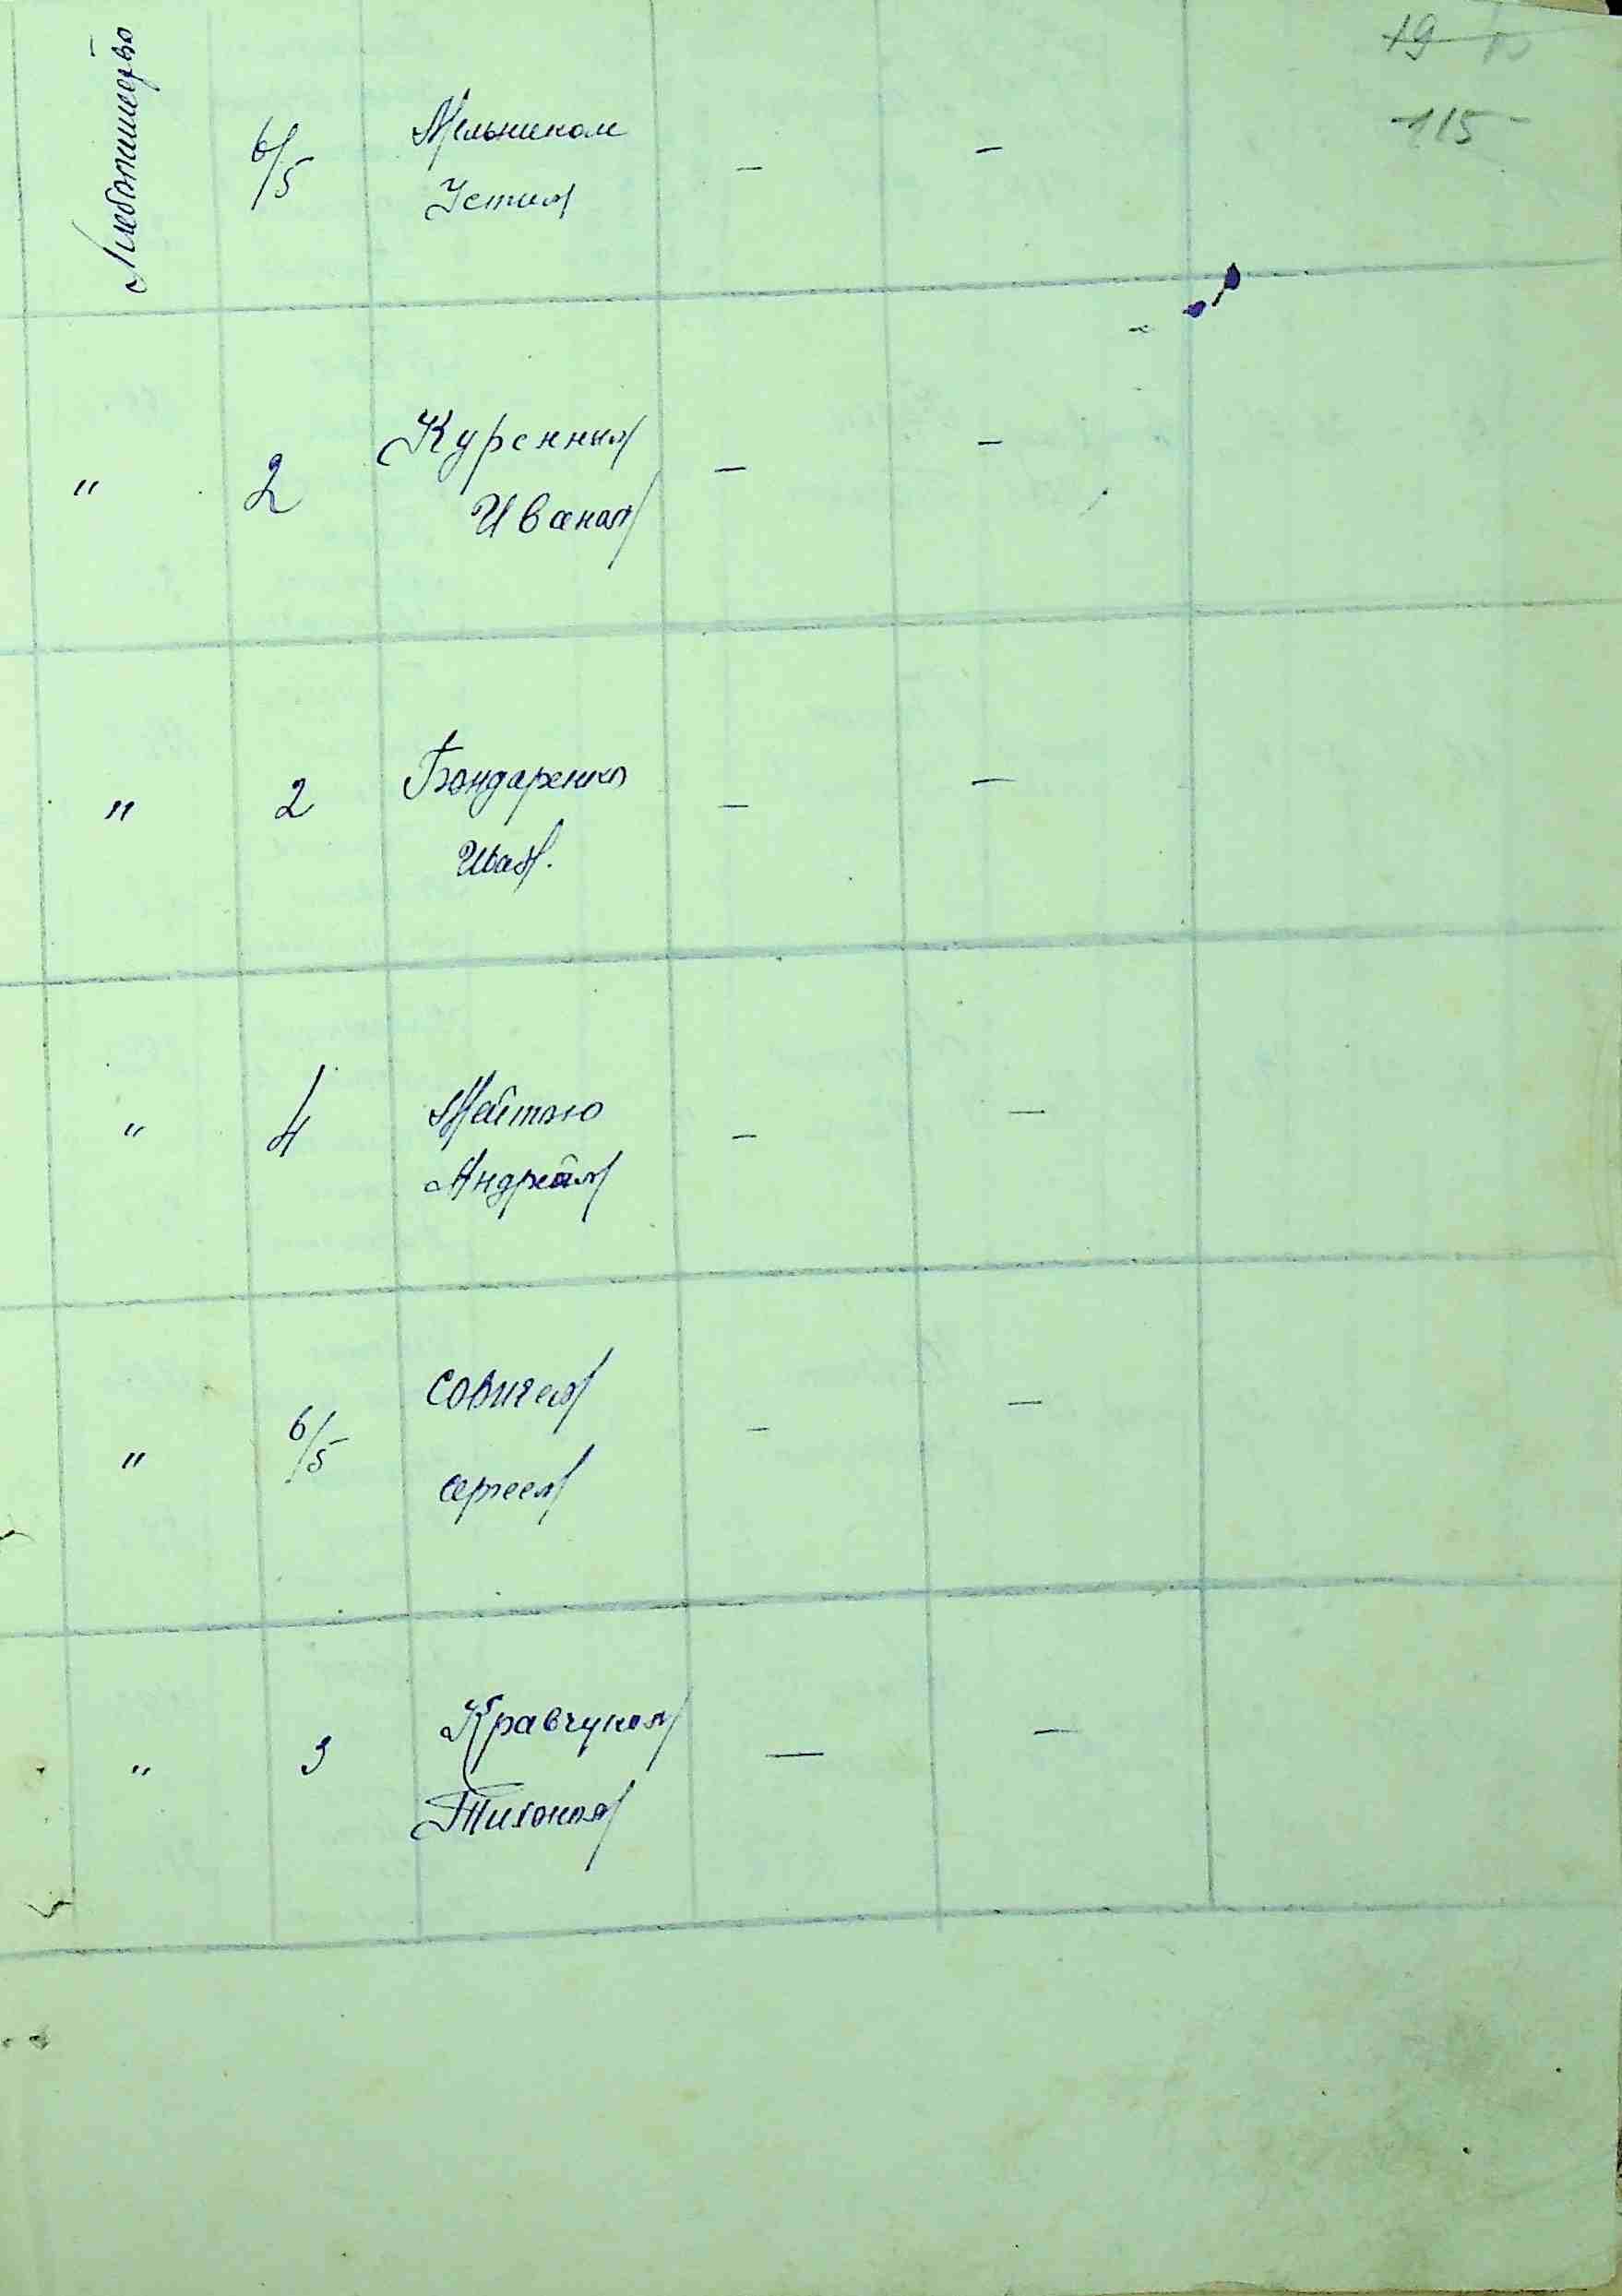 19
115
б/5
Мельником
Устим
"
2
Куренным
Иваном
"
2
Бондаренко
Иван.
"
4
Андреем
"
б/5
Совичем
Сергеем
"
3
Кравчуком
Тихоном